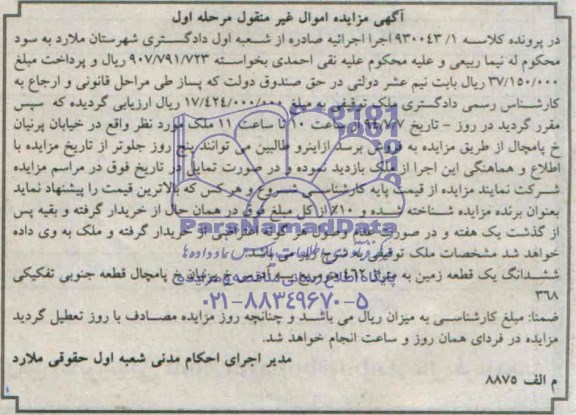 آگهی مزایده اموال غیر منقول مرحله اول
در پرونده کلاسه ۹۳۰۰۴۳/۱ اجرا اجرائیه صادره از شعبه اول دادگستری شهرستان ملارد به سود
محکوم له نیما ربیعی و علیه محکوم علیه نقی احمدی بخواسته ۹۰۷/۷۹۱/۷۲۳ ریال و پرداخت مبلغ
۳۷/۱۵۰/۰۰۰ ریال بابت نیم عشر دولتی در حق صندوق دولت که پساز طی مراحل قانونی و ارجاع به
کارشناس رسمی دادگستری ملک توقیفی به مبلغ ۱۷/۴۲۴/۰۰۰/۰۰۰ ریال ارزیابی گردیده که سپس
مقرر گردید در روز – تاریخ ۹۴/۷/۷ ساعت ۱۰ تا ساعت ۱۱ ملک مورد نظر واقع در خیابان پرنیان
خ پامچال از طریق مزایده به فروش برسد ازاینرو طالبین می توانند پنج روز جلوتر از تاریخ مزایده با
اطلاع و هماهنگی این اجرا از ملک بازدید نموده و در صورت تمایل در تاریخ فوق در مراسم مزایده
شرکت نمایند مزایده از قیمت پایه کارشناسی شروع و هر کس که بالاترین قیمت را پیشنهاد نماید
بعنوان برنده مزایده شناخته شده و ۱۰٪ از کل مبلغ فوق در همان حال از خریدار گرفته و بقیه پس
از گذشت یک هفته و در صورت عدم وصول هر گونه اعتراضی از خریدار گرفته و ملک به وی داده
خواهد شد مشخصات ملک توقیفی به شرح زیر می باشد.
ششدانگ یک قطعه زمین به متراژ ۴۶۲ مترمربع به آدرس خ پرنیان خ پامچال قطعه جنوبی تفکیکی
۳۶۸
ضمنا: مبلغ کارشناسی به میزان ریال می باشد و چنانچه روز مزایده مصادف با روز تعطیل گردید
مزایده در فردای همان روز و ساعت انجام خواهد شد.
مدیر اجرای احکام مدنی شعبه اول حقوقی ملارد
م الف ۸۸۷۵
ParsNamadData
۰۲۱-۸۸۳۴۹۶۷۰-۵